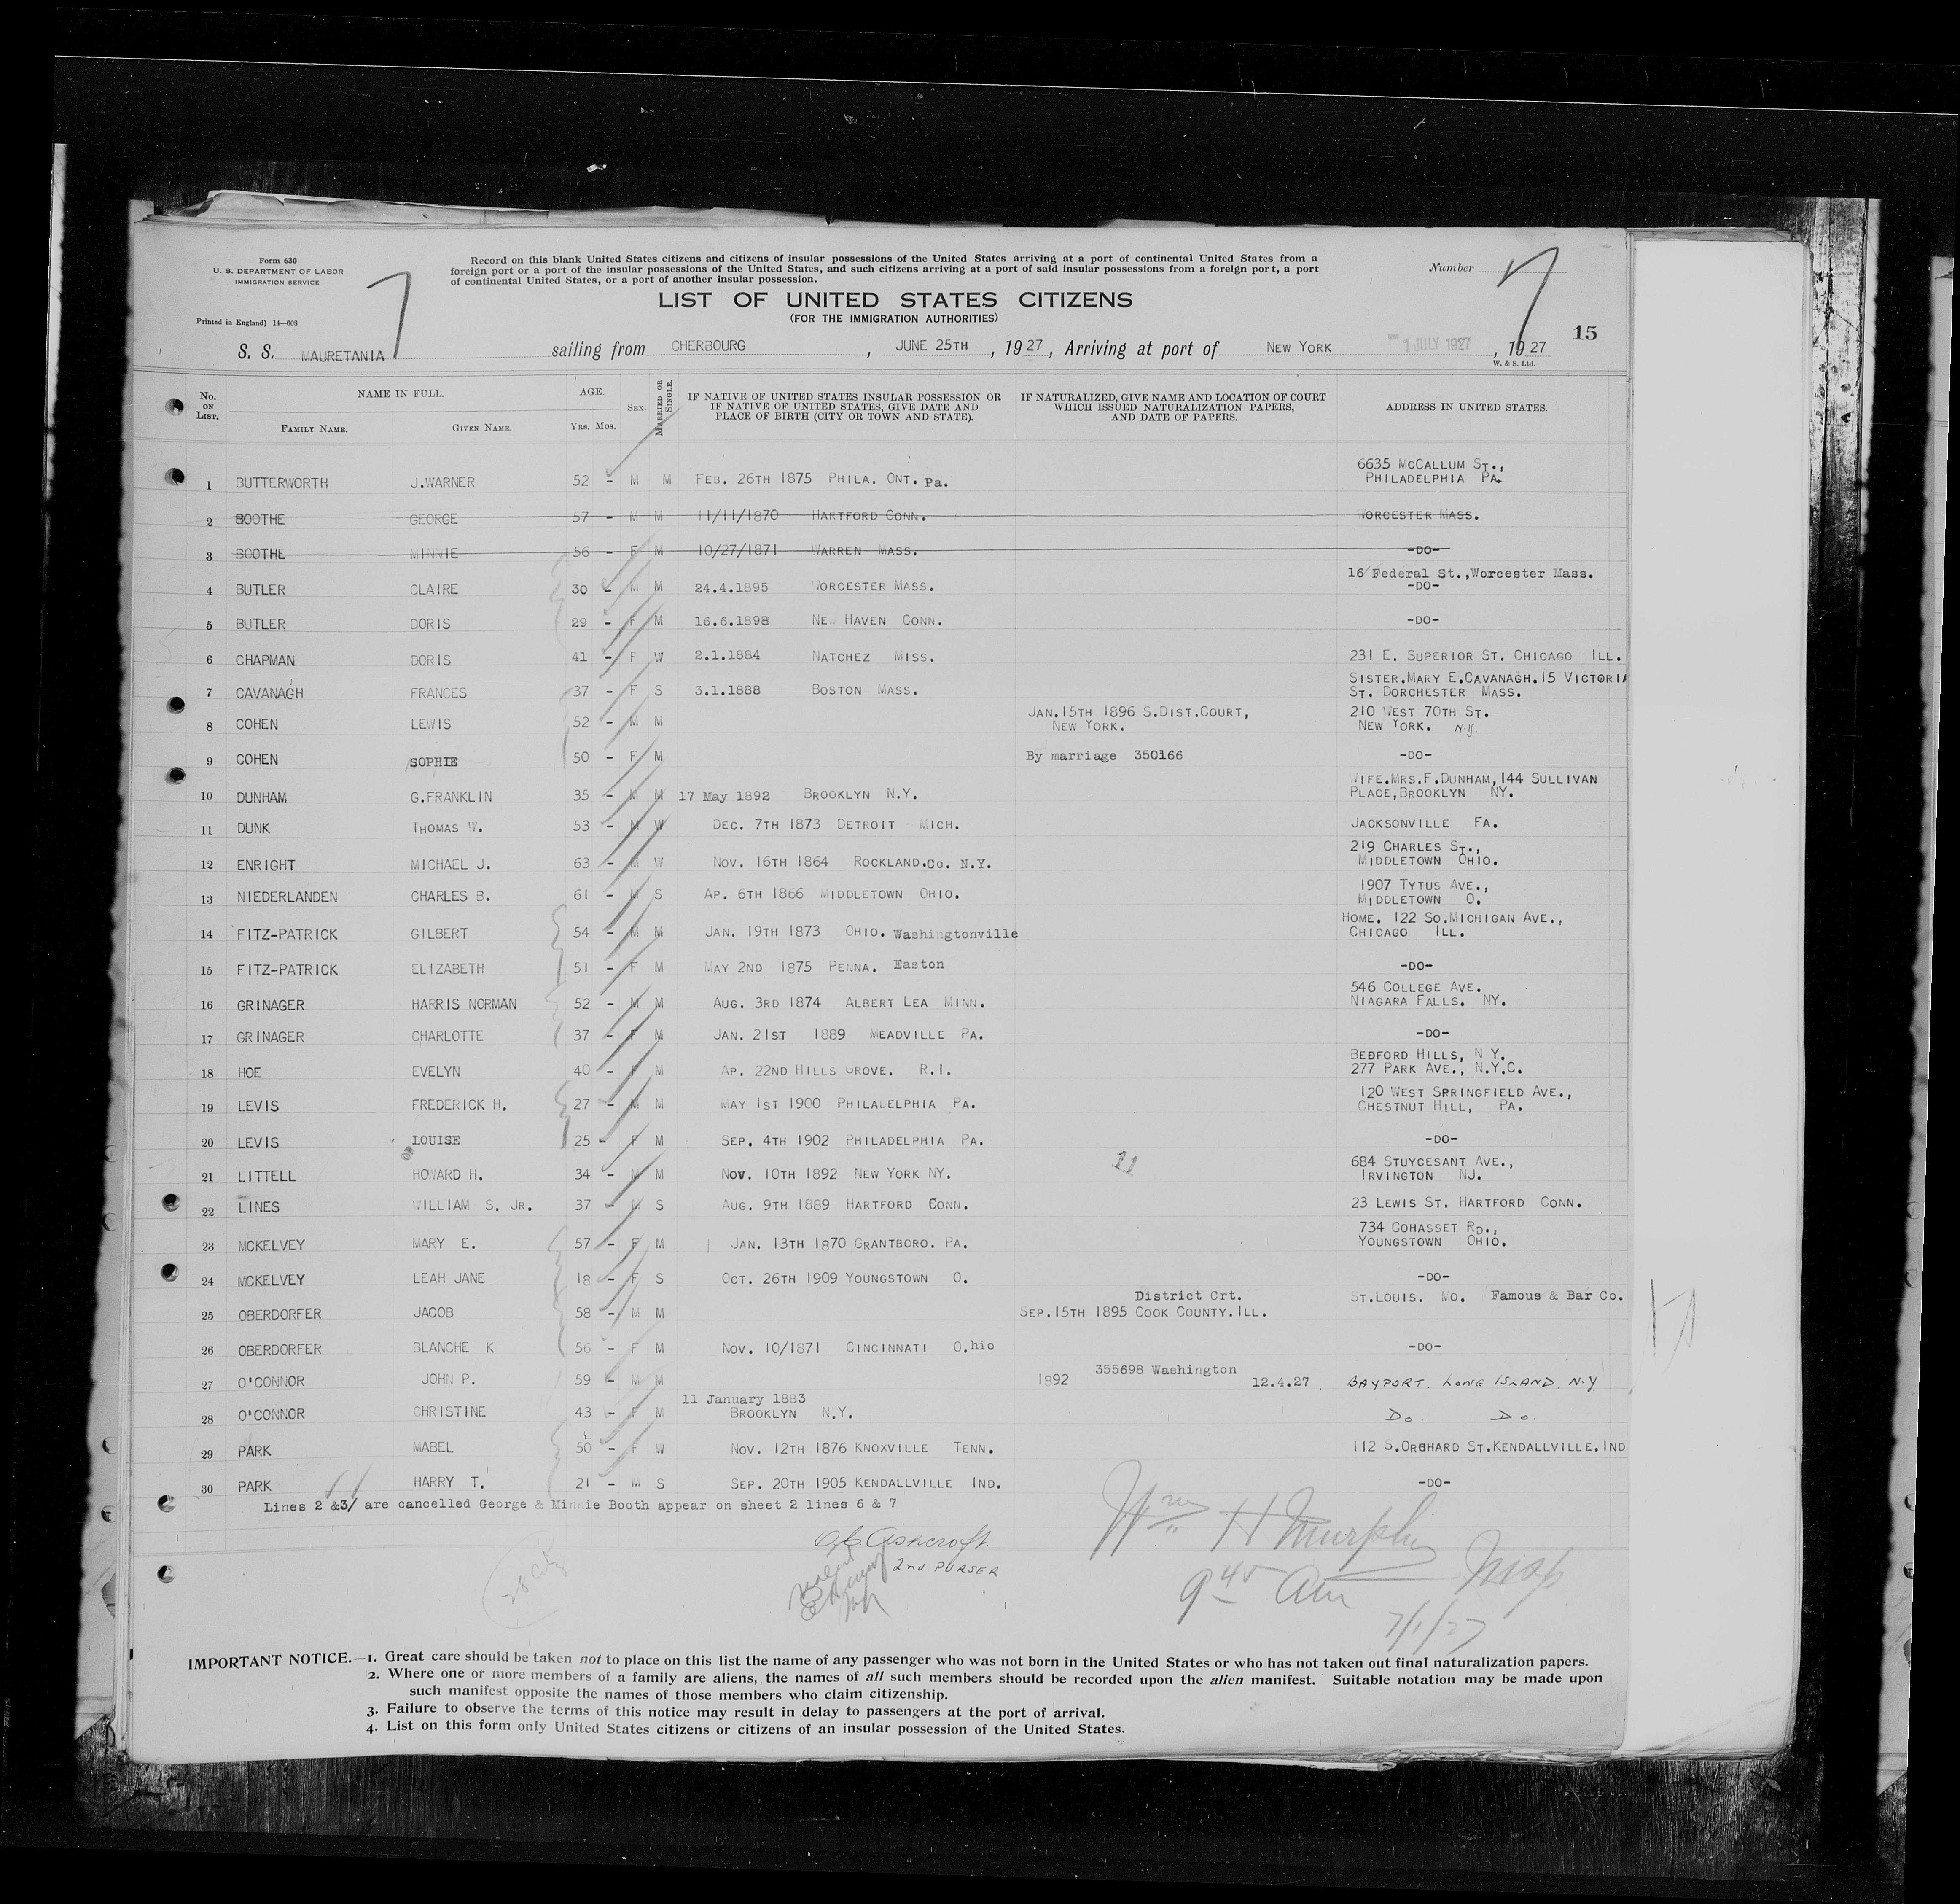 Form 630
U. S. DEPARTMENT OF LABOR
IMMIGRATION SERVICE
Printed in England) 14—608
Record on this blank United States citizens and citizens of insular possessions of the United States arriving at a port of continental United States from a
foreign port or a port of the insular possessions of the United States, and such citizens arriving at a port of said insular possessions from a foreign port, a port
of continental United States, or a port of another insular possession.
Number
LIST OF UNITED STATES CITIZENS
(FOR THE IMMIGRATION AUTHORITIES)
15
S. S. MAURETANIA sailing from CHERBOURG , JUNE 25TH , 1927, Arriving at port of NEW YORK 1 JULY 1927 , 1927
W. & S. Ltd.
No. ON LIST. NAME IN FULL. FAMILY NAME. GIVEN NAME. AGE. YRS. MOS. SEX. MARRIED OR SINGLE. IF NATIVE OF UNITED STATES INSULAR POSSESSION OR IF NATIVE OF UNITED STATES, GIVE DATE AND PLACE OF BIRTH (CITY OR TOWN AND STATE). IF NATURALIZED, GIVE NAME AND LOCATION OF COURT WHICH ISSUED NATURALIZATION PAPERS, AND DATE OF PAPERS. ADDRESS IN UNITED STATES.
1 BUTTERWORTH J.WARNER 52 - M M FEB. 26TH 1875 PHILA. ONT. Pa. 6635 MCCALLUM ST., PHILADELPHIA PA.
2 BOOTHE GEORGE 57 - M M 11/11/1870 HARTFORD CONN. WORCESTER MASS.
3 BOOTHE MINNIE 56 - F M 10/27/1871 WARREN MASS. -DO-
4 BUTLER CLAIRE 30 - M M 24.4.1895 WORCESTER MASS. 16 Federal St.,Worcester Mass. -DO-
5 BUTLER DORIS 29 - F M 16.6.1898 NEW HAVEN CONN. -DO-
6 CHAPMAN DORIS 41 - F W 2.1.1884 NATCHEZ MISS. 231 E. SUPERIOR ST. CHICAGO ILL.
7 CAVANAGH FRANCES 37 - F S 3.1.1888 BOSTON MASS. SISTER.MARY E.CAVANAGH.15 VICTORIA ST. DORCHESTER MASS.
8 COHEN LEWIS 52 - M M JAN.15TH 1896 S.DIST.COURT, NEW YORK. 210 WEST 70TH ST. NEW YORK. N.Y.
9 COHEN SOPHIE 50 - F M By marriage 350166 -DO-
10 DUNHAM G.FRANKLIN 35 - M M 17 May 1892 BROOKLYN N.Y. WIFE.MRS.F.DUNHAM,144 SULLIVAN PLACE,BROOKLYN NY.
11 DUNK THOMAS W. 53 - M W DEC. 7TH 1873 DETROIT MICH. JACKSONVILLE FA.
12 ENRIGHT MICHAEL J. 63 - M W NOV. 16TH 1864 ROCKLAND.Co. N.Y. 219 CHARLES ST., MIDDLETOWN OHIO.
13 NIEDERLANDEN CHARLES B. 61 - M S AP. 6TH 1866 MIDDLETOWN OHIO. 1907 TYTUS AVE., MIDDLETOWN O.
14 FITZ-PATRICK GILBERT 54 - M M JAN. 19TH 1873 OHIO. Washingtonville HOME. 122 SO.MICHIGAN AVE., CHICAGO ILL.
15 FITZ-PATRICK ELIZABETH 51 - F M MAY 2ND 1875 PENNA. Easton -DO-
16 GRINAGER HARRIS NORMAN 52 - M M AUG. 3RD 1874 ALBERT LEA MINN. 546 COLLEGE AVE. NIAGARA FALLS. NY.
17 GRINAGER CHARLOTTE 37 - F M JAN. 21ST 1889 MEADVILLE PA. -DO-
18 HOE EVELYN 40 - F M AP. 22ND HILLS GROVE. R.I. BEDFORD HILLS, N Y. 277 PARK AVE., N.Y.C.
19 LEVIS FREDERICK H. 27 - M M MAY 1ST 1900 PHILADELPHIA PA. 120 WEST SPRINGFIELD AVE., CHESTNUT HILL, PA.
20 LEVIS LOUISE 25 - F M SEP. 4TH 1902 PHILADELPHIA PA. -DO-
21 LITTELL HOWARD H. 34 - M M NOV. 10TH 1892 NEW YORK NY. 11 684 STUYCESANT AVE., IRVINGTON NJ.
22 LINES WILLIAM S. JR. 37 - M S AUG. 9TH 1889 HARTFORD CONN. 23 LEWIS ST. HARTFORD CONN.
23 MCKELVEY MARY E. 57 - F M JAN. 13TH 1870 GRANTBORO. PA. 734 COHASSET RD., YOUNGSTOWN OHIO.
24 MCKELVEY LEAH JANE 18 - F S OCT. 26TH 1909 YOUNGSTOWN O. -DO-
25 OBERDORFER JACOB 58 - M M District Crt. SEP.15TH 1895 COOK COUNTY.ILL. ST.LOUIS. MO. Famous & Bar Co.
26 OBERDORFER BLANCHE K 56 - F M NOV. 10/1871 CINCINNATI O.hio -DO-
27 O'CONNOR JOHN P. 59 - M M 1892 355698 Washington 12.4.27. BAYPORT. LONG ISLAND. N.Y.
28 O'CONNOR CHRISTINE 43 - F M 11 January 1883 BROOKLYN N.Y. Do. Do.
29 PARK MABEL 50 - F W NOV. 12TH 1876 KNOXVILLE TENN. 112 S.ORCHARD ST.KENDALLVILLE.IND
30 PARK HARRY T. 21 - M S SEP. 20TH 1905 KENDALLVILLE IND. -DO-
Lines 2 &3/ are cancelled George & Minnie Booth appear on sheet 2 lines 6 & 7
Ashcroft.
2nd. PURSER
Wm H Murphy
9 45 Am Insp
7/1/27
IMPORTANT NOTICE.—1. Great care should be taken not to place on this list the name of any passenger who was not born in the United States or who has not taken out final naturalization papers.
2. Where one or more members of a family are aliens, the names of all such members should be recorded upon the alien manifest. Suitable notation may be made upon
such manifest opposite the names of those members who claim citizenship.
3. Failure to observe the terms of this notice may result in delay to passengers at the port of arrival.
4. List on this form only United States citizens or citizens of an insular possession of the United States.